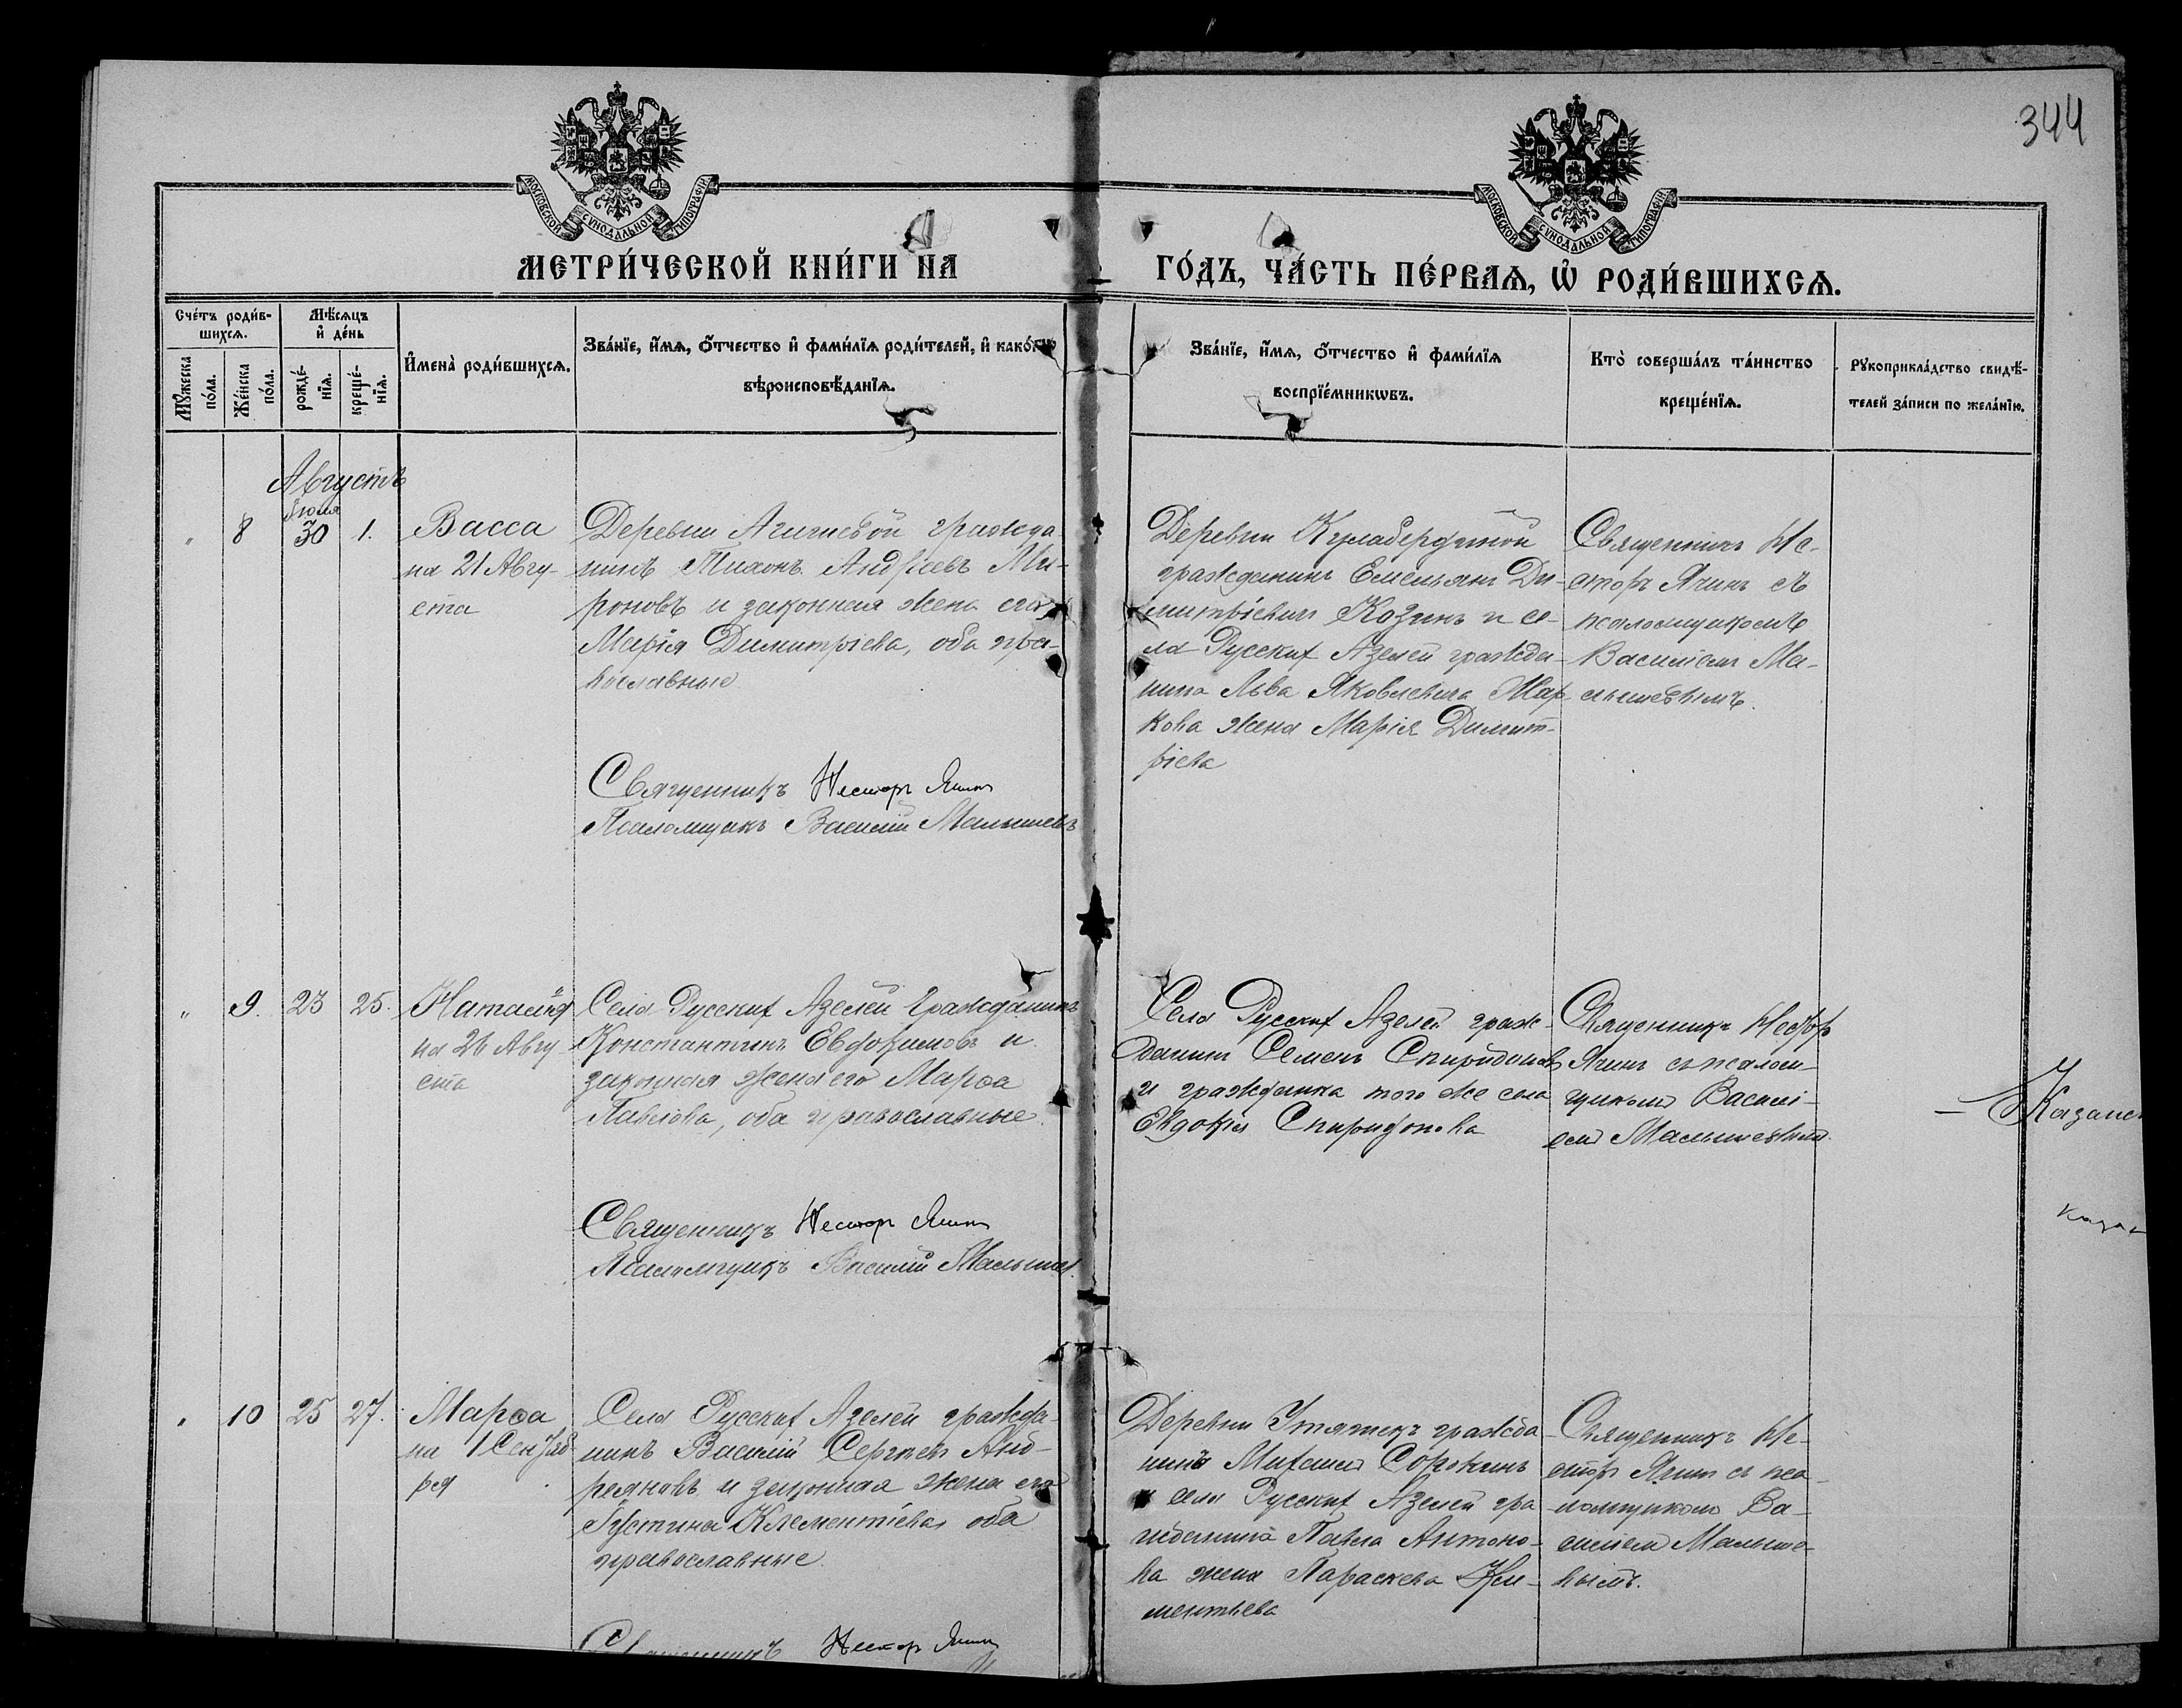 344
МОСКОВСКОЙ СУНОДАЛЬНОЙ ТИПОГРАФІИ
МОСКОВСКОЙ СУНОДАЛЬНОЙ ТИПОГРАФІИ
МЕТРИ́ЧЕСКОЙ КНИ́ГИ НА
ГО́ДЪ, ЧА́СТЬ ПЕ́РВАѦ, Ѡ҆ РОДИ́ВШИХСѦ.
Сче́тъ роди́в-
шихсѧ.
Мѣ́сѧцъ
и҆ де́нь
Мꙋ́жеска
по́ла.
Же́нска
по́ла.
рожде́-
нїѧ.
креще́-
нїѧ.
И҆мена̀ роди́вшихсѧ.
Зва́нїе, и҆́мѧ, ѻ҆́тчество и҆ фами́лїѧ роди́телей, и҆ како́гѡ
вѣроисповѣ́данїѧ.
Зва́нїе, и҆́мѧ, ѻ҆́тчество и҆ фами́лїѧ
воспрїе́мникѡвъ.
Кто̀ соверша́лъ та́инство
креще́нїѧ.
Рꙋкоприкла́дство свидѣ́-
телей за́писи по жела́нїю.
Августъ
Іюля
8 30 1.
Васса
на 21 Авгу-
ста
Деревни гражда
нинъ Тихонъ Андреевъ Ми-
роновъ и законная жена его
Марія Димитріева, оба пра-
вославные
Священникъ Несторъ
Псаломщикъ Василій Малышевъ
Деревни
гражданинъ Емельянъ Ди-
митріевичъ Козинъ и се-
ла Русскихъ Азелей гражда-
нина Льва Яковлевича Мар-
кова жена Марія Димит-
ріева
Священникъ Не-
сторъ съ
псаломщикомъ
Василіемъ Ма-
лышевымъ.
9. 23 25.
Наталія
на 26 Авгу
ста
Села Русскихъ Азелей Гражданинъ
Константинъ Евдокимовъ и
законная жена его Марѳа
Павлова, оба православные.
Священникъ Несторъ
Псаломщикъ Василій Малышев
Села Русскихъ Азелей граж-
данинъ Семенъ Спиридоновъ
и гражданка того же села
Евдокія Спиридонова
Священникъ Нестор
съ псалом-
щикомъ Василі-
емъ Малышевымъ.
Казанс
каза
10 25 27.
Марѳа
на 1 Сентяб-
ря
Села Русскихъ Азелей гражда-
нинъ Василій Сергѣевъ Анд-
реяновъ и законная жена его
Іустина Клементіева, оба
православные.
Священникъ Несторъ
Деревни Утяшекъ гражда-
нинъ Михаилъ Сорокинъ
и села Русскихъ Азелей гра
жданина Павла Антоно-
ва жена Параскева Кли-
ментьева
Священникъ Не-
сторъ съ пса-
ломщикомъ Ва-
силіемъ Малыше-
вымъ.